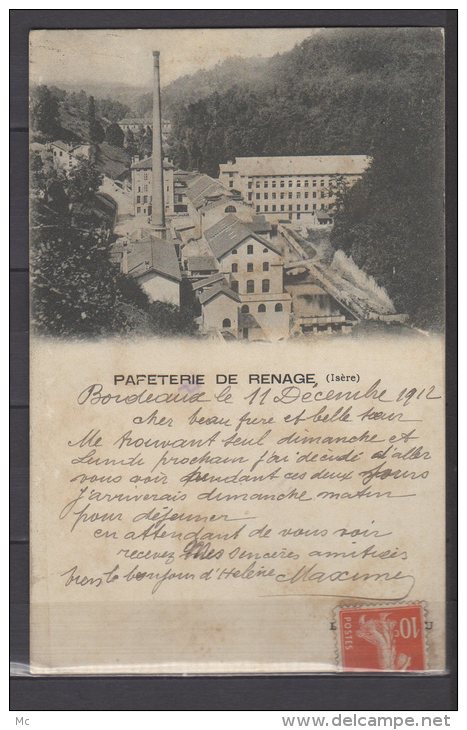 PAPETERIE DE RENAGE (Isère)
Bordeaux le 11 Décembre 1912
cher beau frère et belle sœur
Me trouvant seul dimanche et
Lundi prochain j'ai décidé d'aller
vous voir pendant ces deux jours
j'arriverais dimanche matin
pour déjeuner
en attendant de vous voir
recevez mes sincères amitiés
bien le bonjour d'Hélène Maxime
10c
POSTES
Mc
https://www.delcampe.net